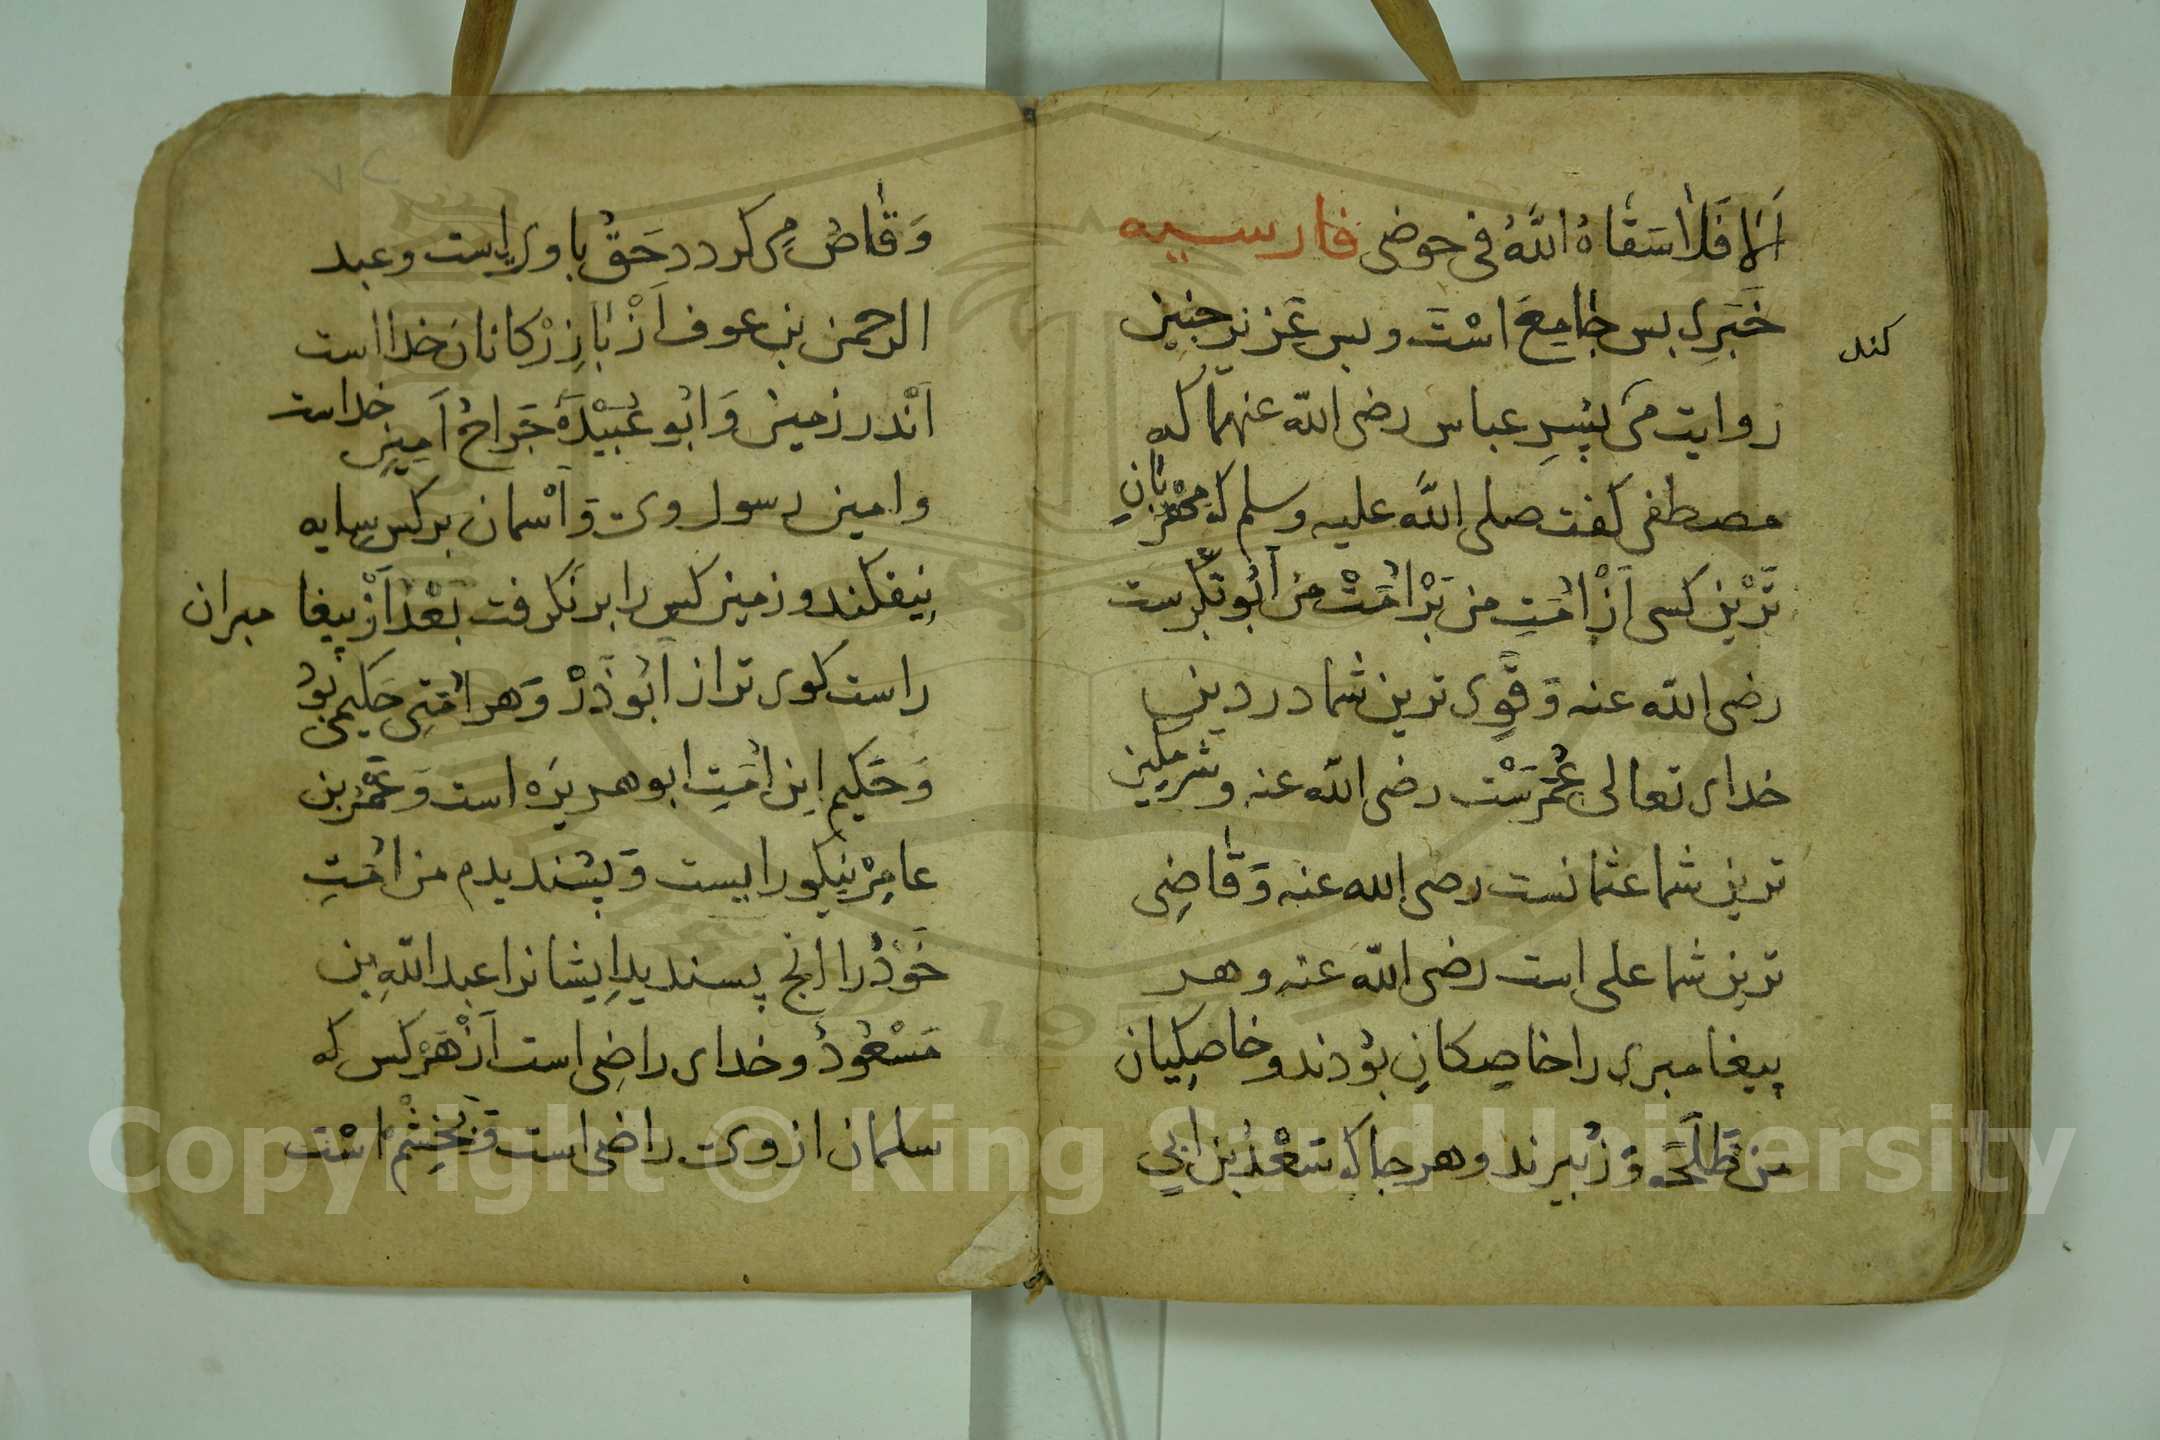 اَلَا فَلَا سَقَاهُ اللّٰهُ فی حوضی فارسیه
خَبَرِی بس جامِعَ اسْتَ وبس عَزیز چنین
روایت می پِسِرِ عباس رضی الله عنهما که
کند
مصطفی کفت صلی اللّٰه علیه وسلم که مِهْرَبانِ
تَرْین کسی اَزْ امَتِ من بَرْ امَتْ من اَبُو بَکرست
رضی الله عنه وَ قَوِی ترین شما در دینِ
خدای تعالی عُمَرَسْت رضی الله عنه و شرمکین
ترین شما عثمانست رضی الله عنه وَ قَاضِی
ترین شما علی است رضی الله عنه و هر
پیغامبری را خاصِکانِ بُودند و خاصِکِیان
من طَلَحَه وَ زُبیرند و هر جا که سَعْدُ بْن ابِی
وَقَاصْ می کرد در حَقْ با وی است و عبد
الرحمن بن عوف اَزْ بازِرْکانانَ خدا است
اَنْدر زمین وَ ابُو عُبَیْدَه جَراحْ اَمِینِ خداست
و امین رسول وی وَ اسْمان بر کس سایه
نِیفکند و زمین کس را بر نَکرفت بَعْد اَزْ پیغا مبران
راست کوی تر از اَبُو ذَرْ وَ هر امَتِی حَکیمی بُود
وَ حَکِیم این امَتِ ابو هریَرَه است وَ عُمَرْ بن
عامِرْ نیکو رایست وَ پسَندیدم من امَتِ
خَوْدْ را انج پسندید ایشانرا عبد اللّٰهِ بن
مَسْعُودْ و خدای راضِی است اَزْ هَرْ کس که
سلمان از وی راضی است وَ بَخِشْم اسْت
Copyright © King Saud University